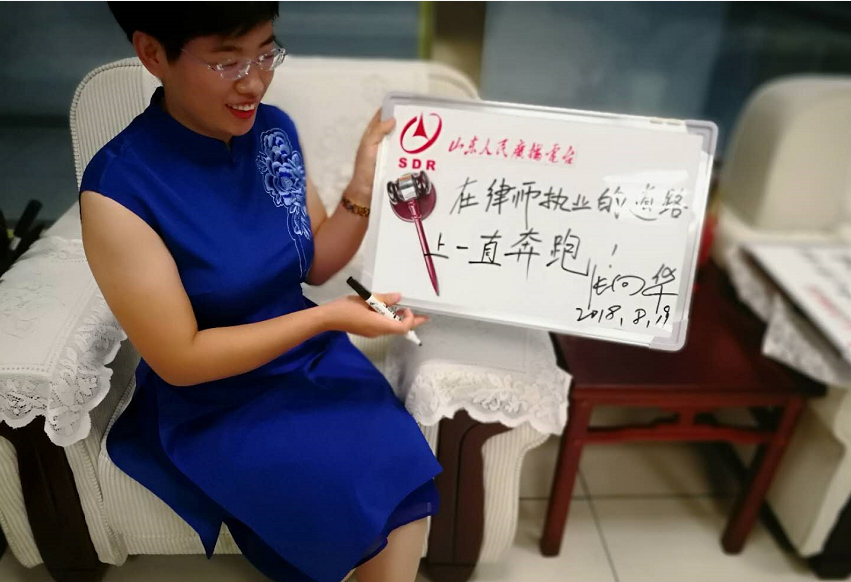 SDR
山东人民广播电台
在律师执业的道路
上一直奔跑！
2018.8.19